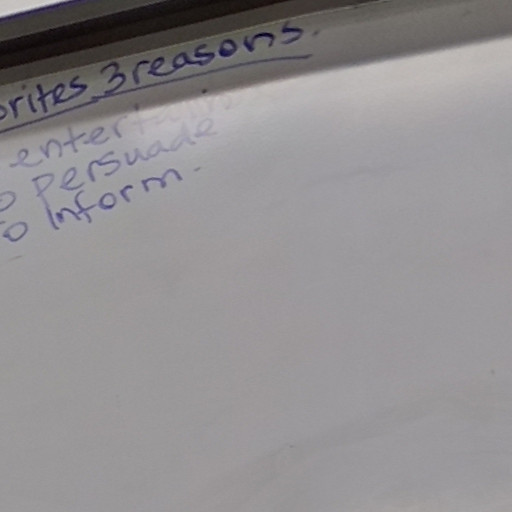 orites 3 reasons.
entertain
o persuade
o Inform.